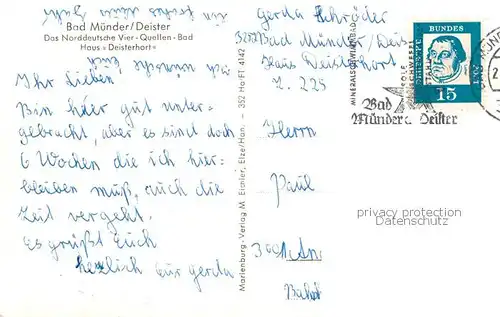 Bad Münder/Deister
Das Norddeutsche Vier-Quellen-Bad
Haus »Deisterhort«
Ihr Lieben
Bin hier gut unter-
gebracht, aber es sind doch
6 Wochen die ich hier-
bleiben muß, auch die
Zeit vergeht.
Es grüßt Euch
herzlich Eure Gerda
Marienburg-Verlag M. Eismler, Elze/Han. - 352 Ho/Ft 4142
Gerda Schröder
3252 Bad Münder/Deis.
Haus Deisterhort
Z. 225
Herrn
Paul
Bahnh
MINERALSCHWIMMBAD
SOLE
SCHWEFEL
STAHL
Bad
Münder a. Deister
DEUTSCHE
BUNDES
POST
15
privacy protection
Datenschutz